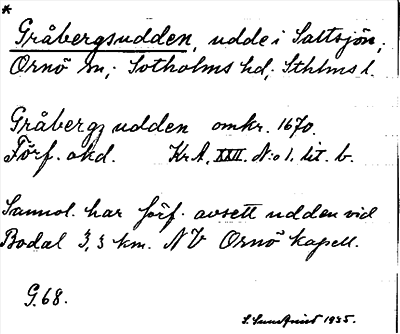 *
Gråbergsudden, udde i Saltsjön;
Ornö sn; Sotholms hd; Sthlms l.
Gråbergz udden omkr. 1670.
Förf. okd. Kr A, XXII. N:o 1. lit. b.
Sannol. har förf. avsett udden vid
Bodal 3,3 km. NV Ornö kapell.
G.68.
S. Sundqvist 1935.